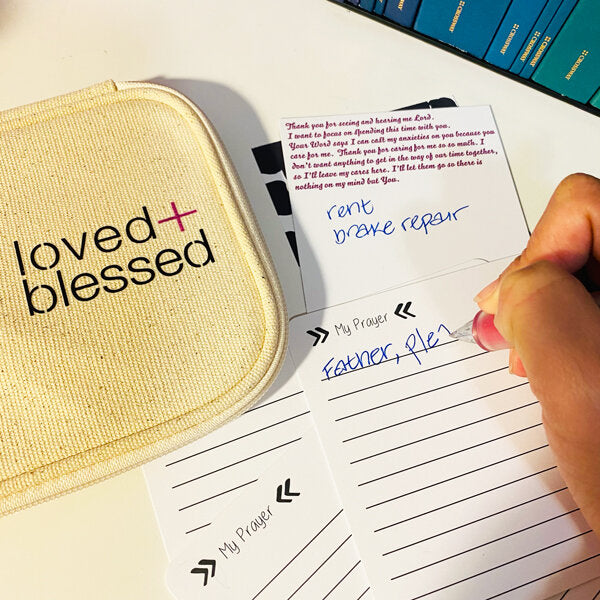 loved+
blessed
Thank you for seeing and hearing me Lord.
I want to focus on spending this time with you.
Your Word says I can cast my anxieties on you because you
care for me. Thank you for caring for me so so math. I
don't want anything to get in the way of our time together,
so I'll leave my cares here. I'll let them go so there is
nothing on my mind but You.
rent
brake repair
My Prayer
Father, ple
My Prayer
CROSSWAY
CROSSWAY
CROSSWAY
CROSSWAY